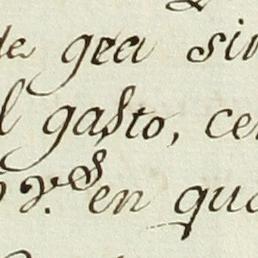 de gea sin
l gasto, ce
r.s en qua